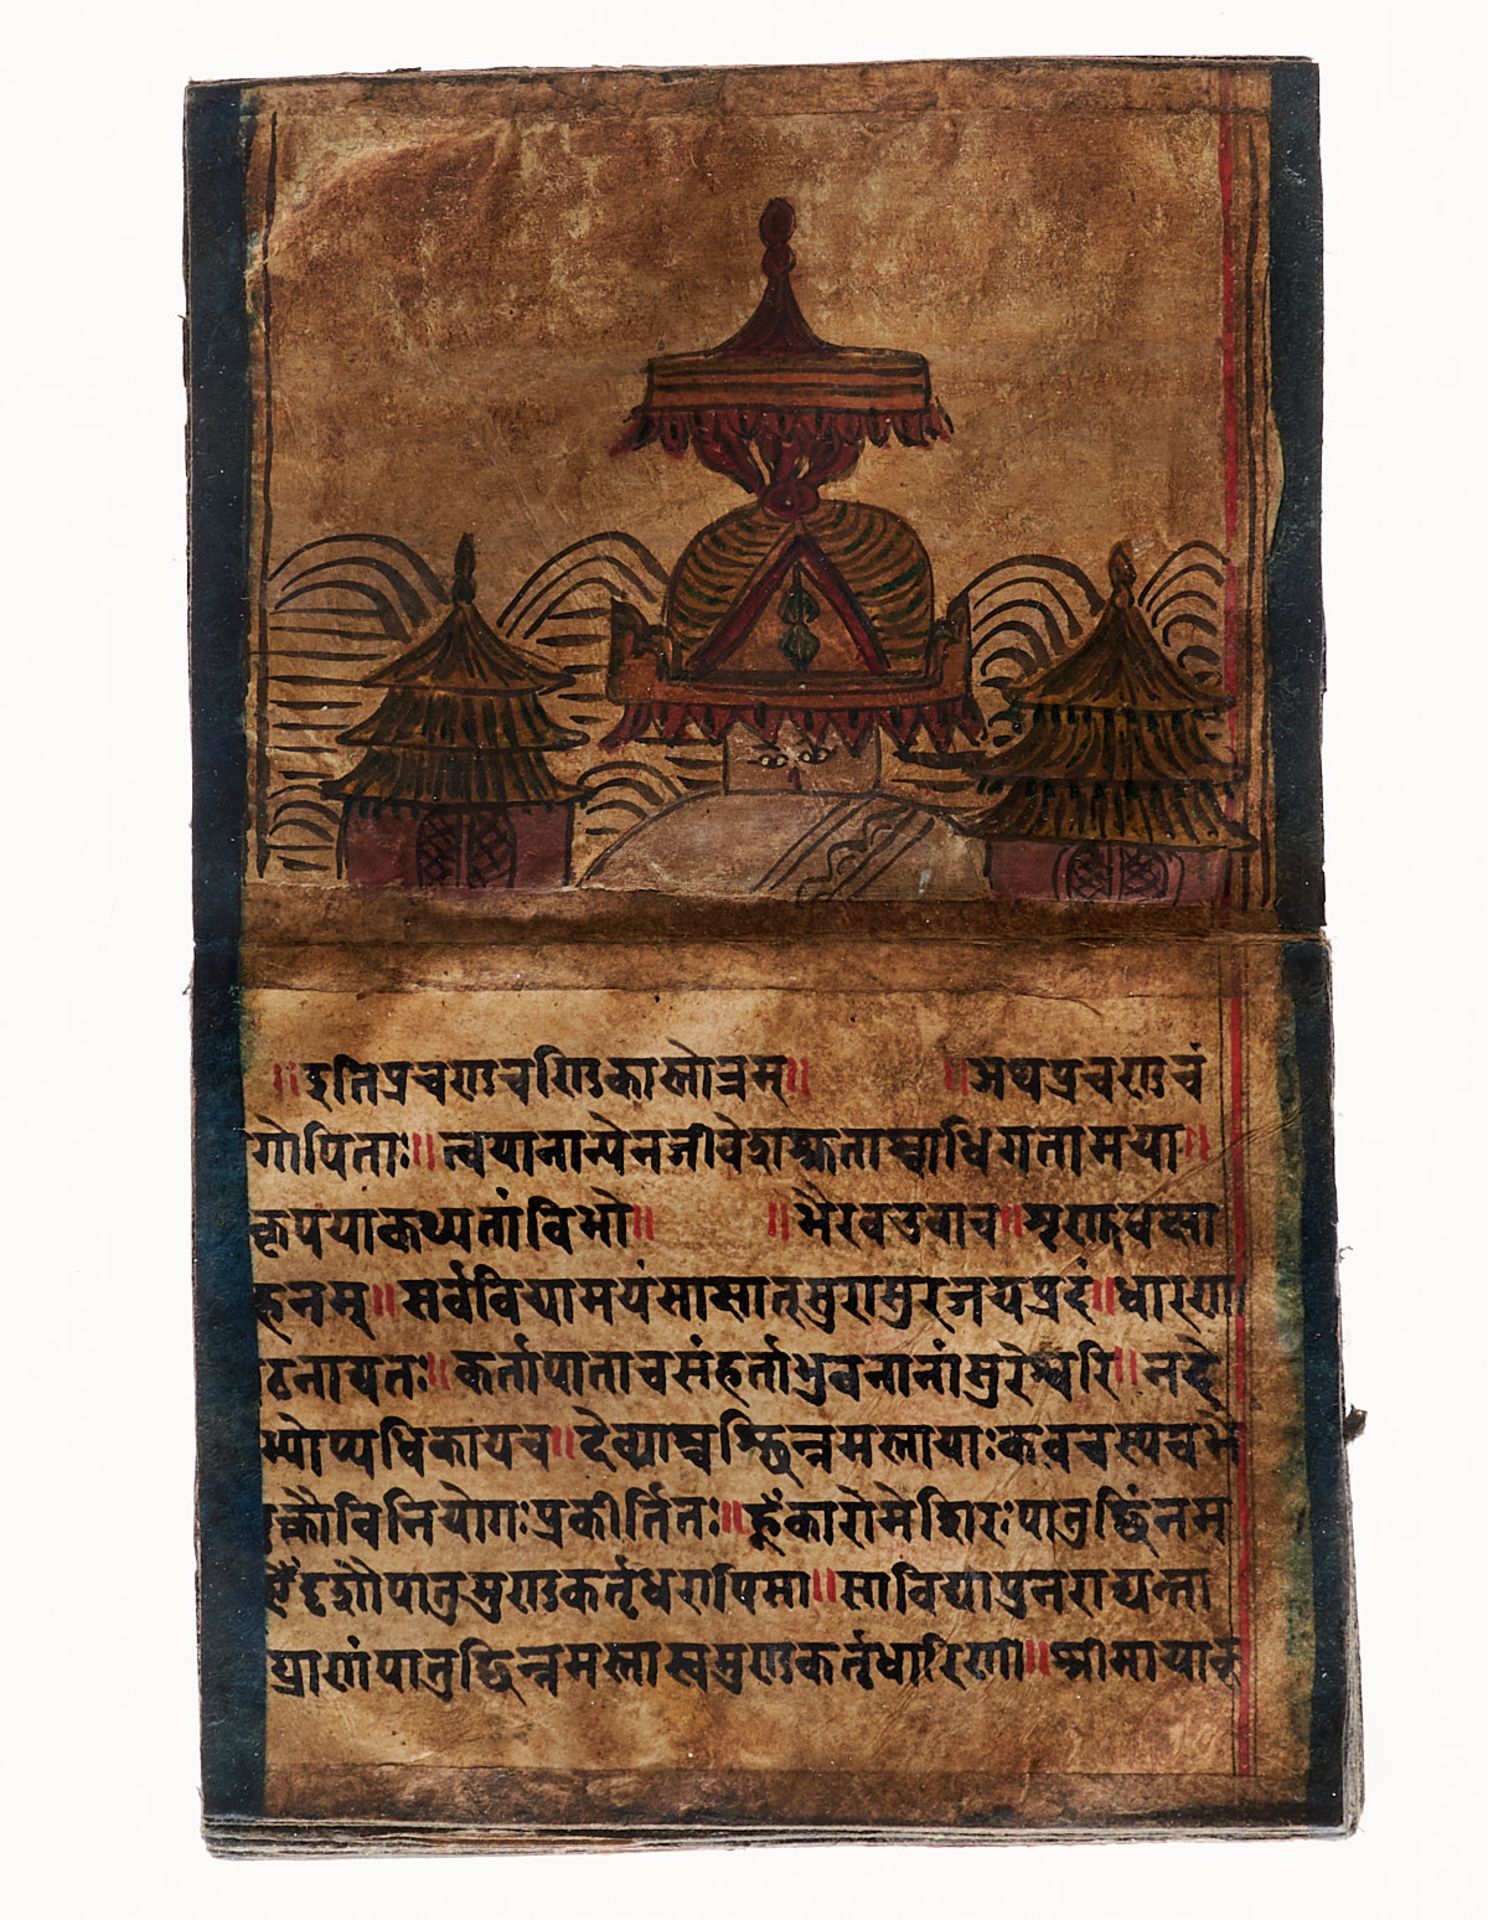 ॥इतिप्रचण्डचण्डिकास्तोत्रम्॥ ॥अथप्रचण्डचं
गोपिताः॥त्वयानाथेनजीवेशश्रुताश्चाधिगतामया॥
कृपयाकथ्यतांविभो॥ ॥भैरवउवाच॥शृणुवक्ष्या
हनम्॥सर्वविद्यामयंसाक्षात्सुरासुरजयप्रदं॥धारणा
ठनाद्यतः॥कर्तापाताचसंहर्ताभुवनानांसुरेश्वरि॥नदे
भ्योप्यधिकायच॥देव्याश्चच्छिन्नमस्तायाःकवचस्यचभै
क्तौविनियोगःप्रकीर्तितः॥हूँकारोमेशिरःपातुच्छिंनम
ह्रैंदृशौपातुमुण्डकर्तृधरापिमा॥साविद्याप्रनराद्यन्ता
घ्राणंपातुछिन्नमस्तास्वमुण्डकर्तृधारिणी॥श्रीमायाकू